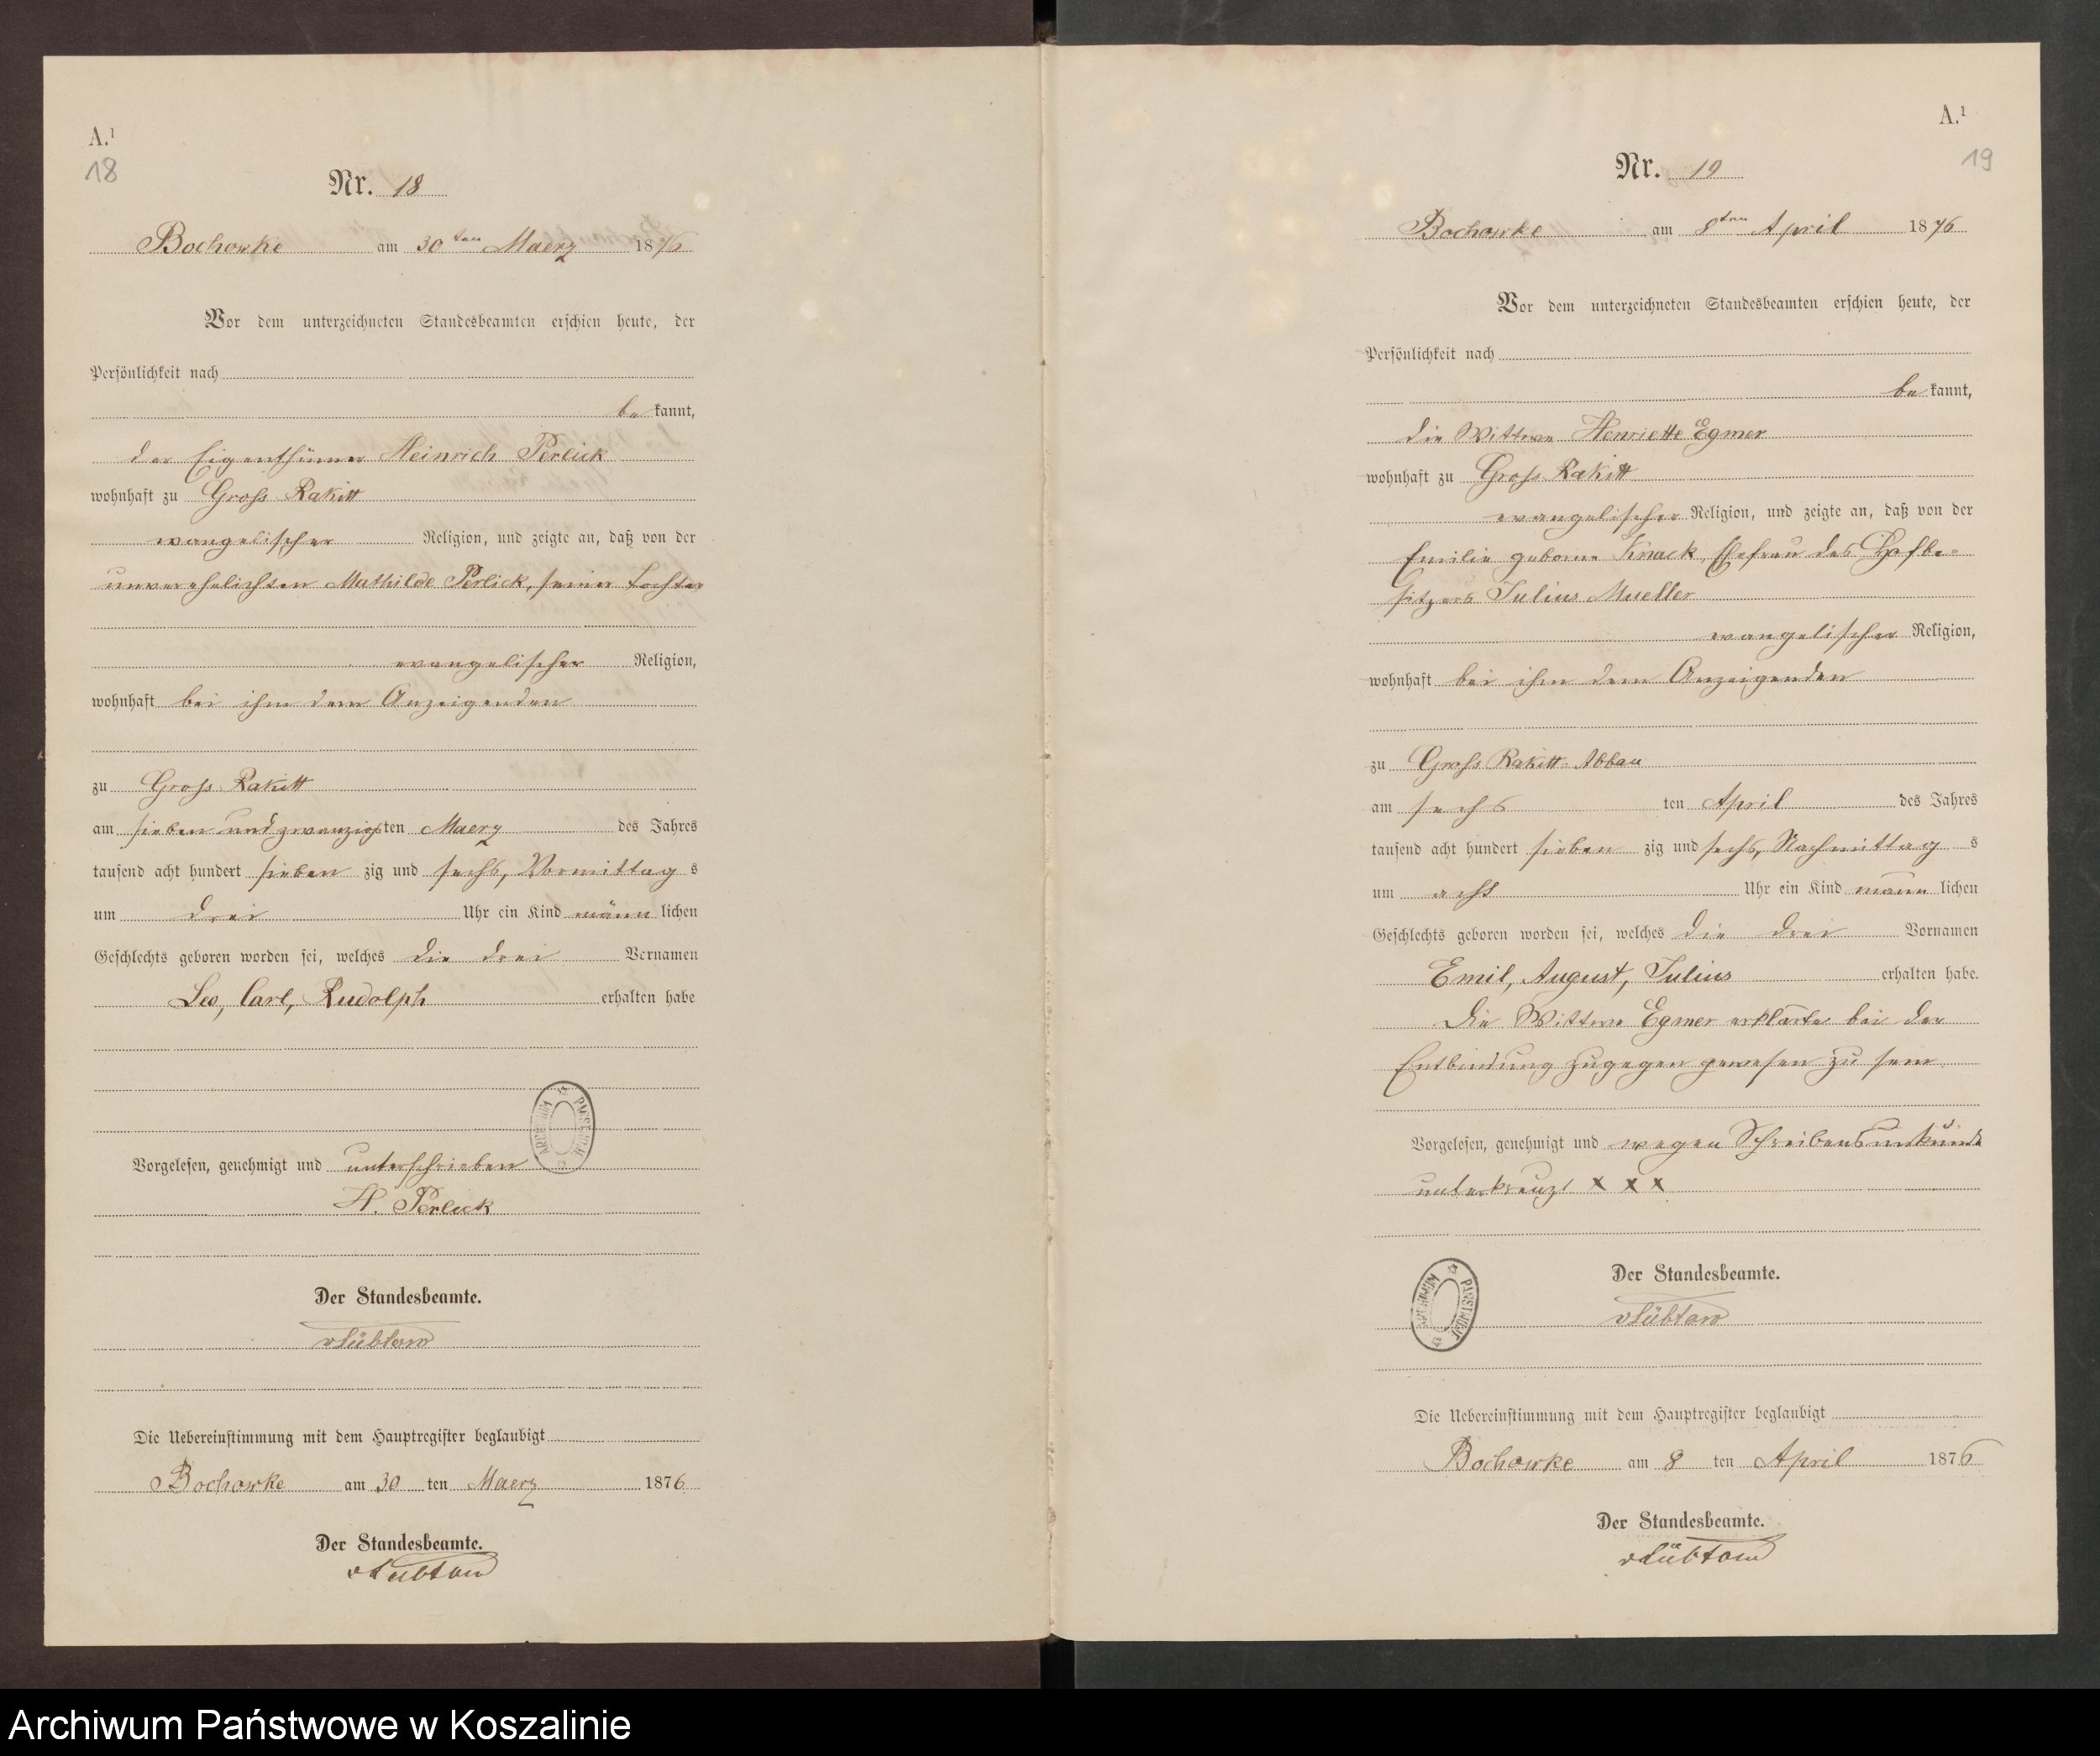 A.¹
18
Nr. 18
Bochowke am 30ten Maerz 1876
Vor dem unterzeichneten Standesbeamten erschien heute, der
Persönlichkeit nach
be kannt,
der Eigenthümer Heinrich Perlick
wohnhaft zu Gross Rakitt
evangelischer Religion, und zeigte an, daß von der
unverehelichten Mathilde Perlick, seiner Tochter
evangelischer Religion,
wohnhaft bei ihm dem Anzeigenden
zu Gross Rakitt
am sieben und zwanzigsten Maerz des Jahres
tausend acht hundert sieben zig und sechs, Vormittag s
um drei Uhr ein Kind männ lichen
Geschlechts geboren worden sei, welches die drei Vornamen
Leo, Carl, Rudolph erhalten habe
ARCHIWUM PAŃSTWOWE
Vorgelesen, genehmigt und unterschrieben
H. Perlick
Der Standesbeamte.
vLübtow
Die Uebereinstimmung mit dem Hauptregister beglaubigt
Bochowke am 30 ten Maerz 1876
Der Standesbeamte.
vLübtow
A.¹
19
Nr. 19
Bochowke am 8ten April 1876
Vor dem unterzeichneten Standesbeamten erschien heute, der
Persönlichkeit nach
be kannt,
die Wittwe Henriette Egmer
wohnhaft zu Gross Rakitt
evangelischer Religion, und zeigte an, daß von der
Emilie geborne Knack, Ehefrau des Hofbe-
sitzers Julius Mueller
evangelischer Religion,
wohnhaft bei ihm dem Anzeigenden
zu Gross Rakitt Abbau
am sechs ten April des Jahres
tausend acht hundert sieben zig und sechs, Nachmittag s
um acht Uhr ein Kind männ lichen
Geschlechts geboren worden sei, welches die drei Vornamen
Emil, August, Julius erhalten habe.
Die Wittwe Egmer erklärte bei der
Entbindung zugegen gewesen zu sein
Vorgelesen, genehmigt und wegen Schreibensunkunde
unterkreuzt x x x
Der Standesbeamte.
ARCHIWUM PAŃSTWOWE
vLübtow
Die Uebereinstimmung mit dem Hauptregister beglaubigt
Bochowke am 8 ten April 1876
Der Standesbeamte.
vLübtow
Archiwum Państwowe w Koszalinie